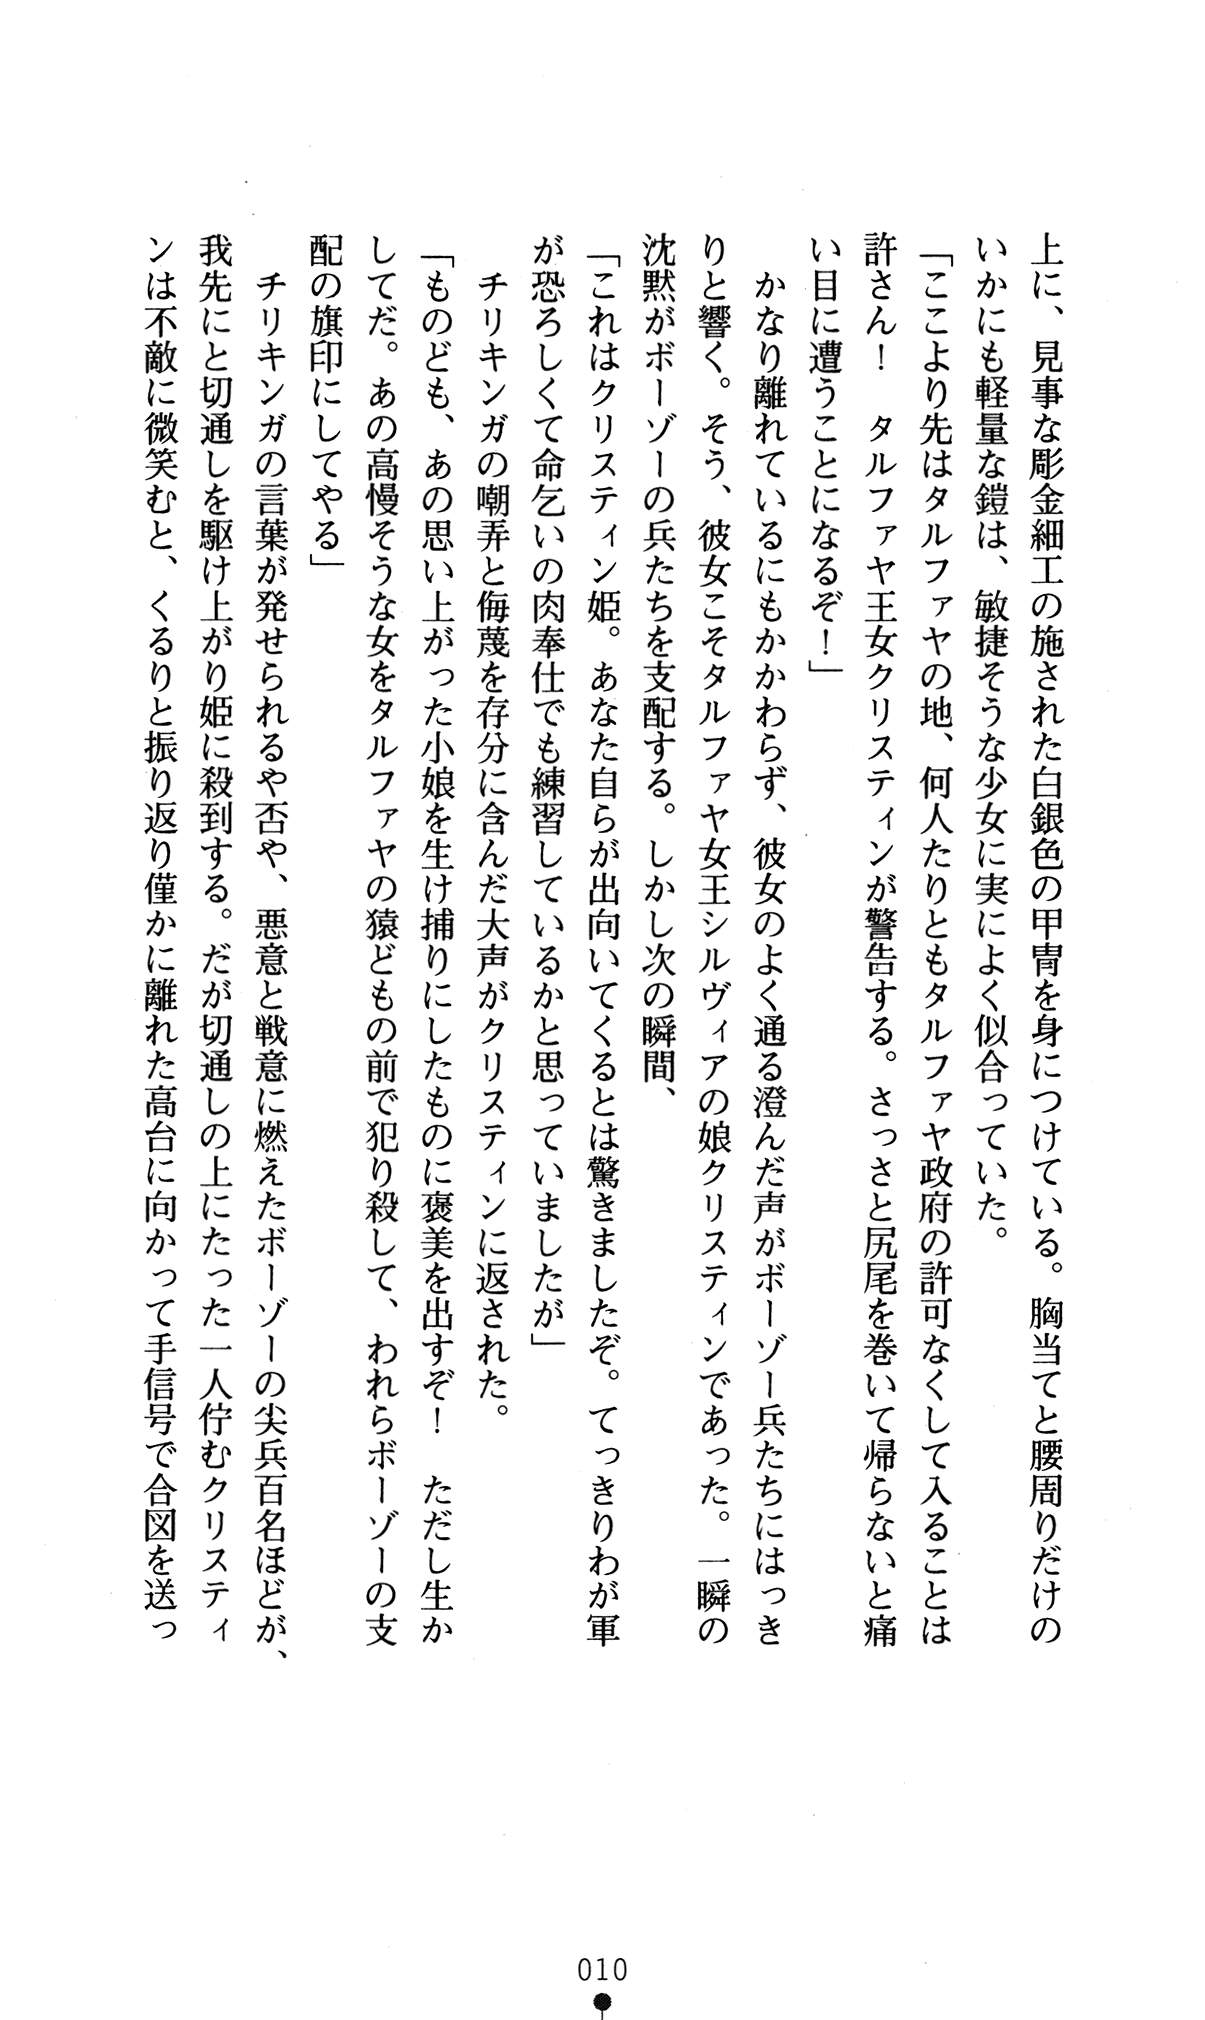 上に、見事な彫金細工の施された白銀色の甲冑を身につけている。胸当てと腰周りだけの
いかにも軽量な鎧は、敏捷そうな少女に実によく似合っていた。
「ここより先はタルファヤの地、何人たりともタルファヤ政府の許可なくして入ることは
許さん！　タルファヤ王女クリスティンが警告する。さっさと尻尾を巻いて帰らないと痛
い目に遭うことになるぞ！」
　かなり離れているにもかかわらず、彼女のよく通る澄んだ声がボーゾー兵たちにはっき
りと響く。そう、彼女こそタルファヤ女王シルヴィアの娘クリスティンであった。一瞬の
沈黙がボーゾーの兵たちを支配する。しかし次の瞬間、
「これはクリスティン姫。あなた自らが出向いてくるとは驚きましたぞ。てっきりわが軍
が恐ろしくて命乞いの肉奉仕でも練習しているかと思っていましたが」
　チリキンガの嘲弄と侮蔑を存分に含んだ大声がクリスティンに返された。
「ものども、あの思い上がった小娘を生け捕りにしたものに褒美を出すぞ！　ただし生か
してだ。あの高慢そうな女をタルファヤの猿どもの前で犯り殺して、われらボーゾーの支
配の旗印にしてやる」
　チリキンガの言葉が発せられるや否や、悪意と戦意に燃えたボーゾーの尖兵百名ほどが、
我先にと切通しを駆け上がり姫に殺到する。だが切通しの上にたった一人佇むクリスティ
ンは不敵に微笑むと、くるりと振り返り僅かに離れた高台に向かって手信号で合図を送っ
010